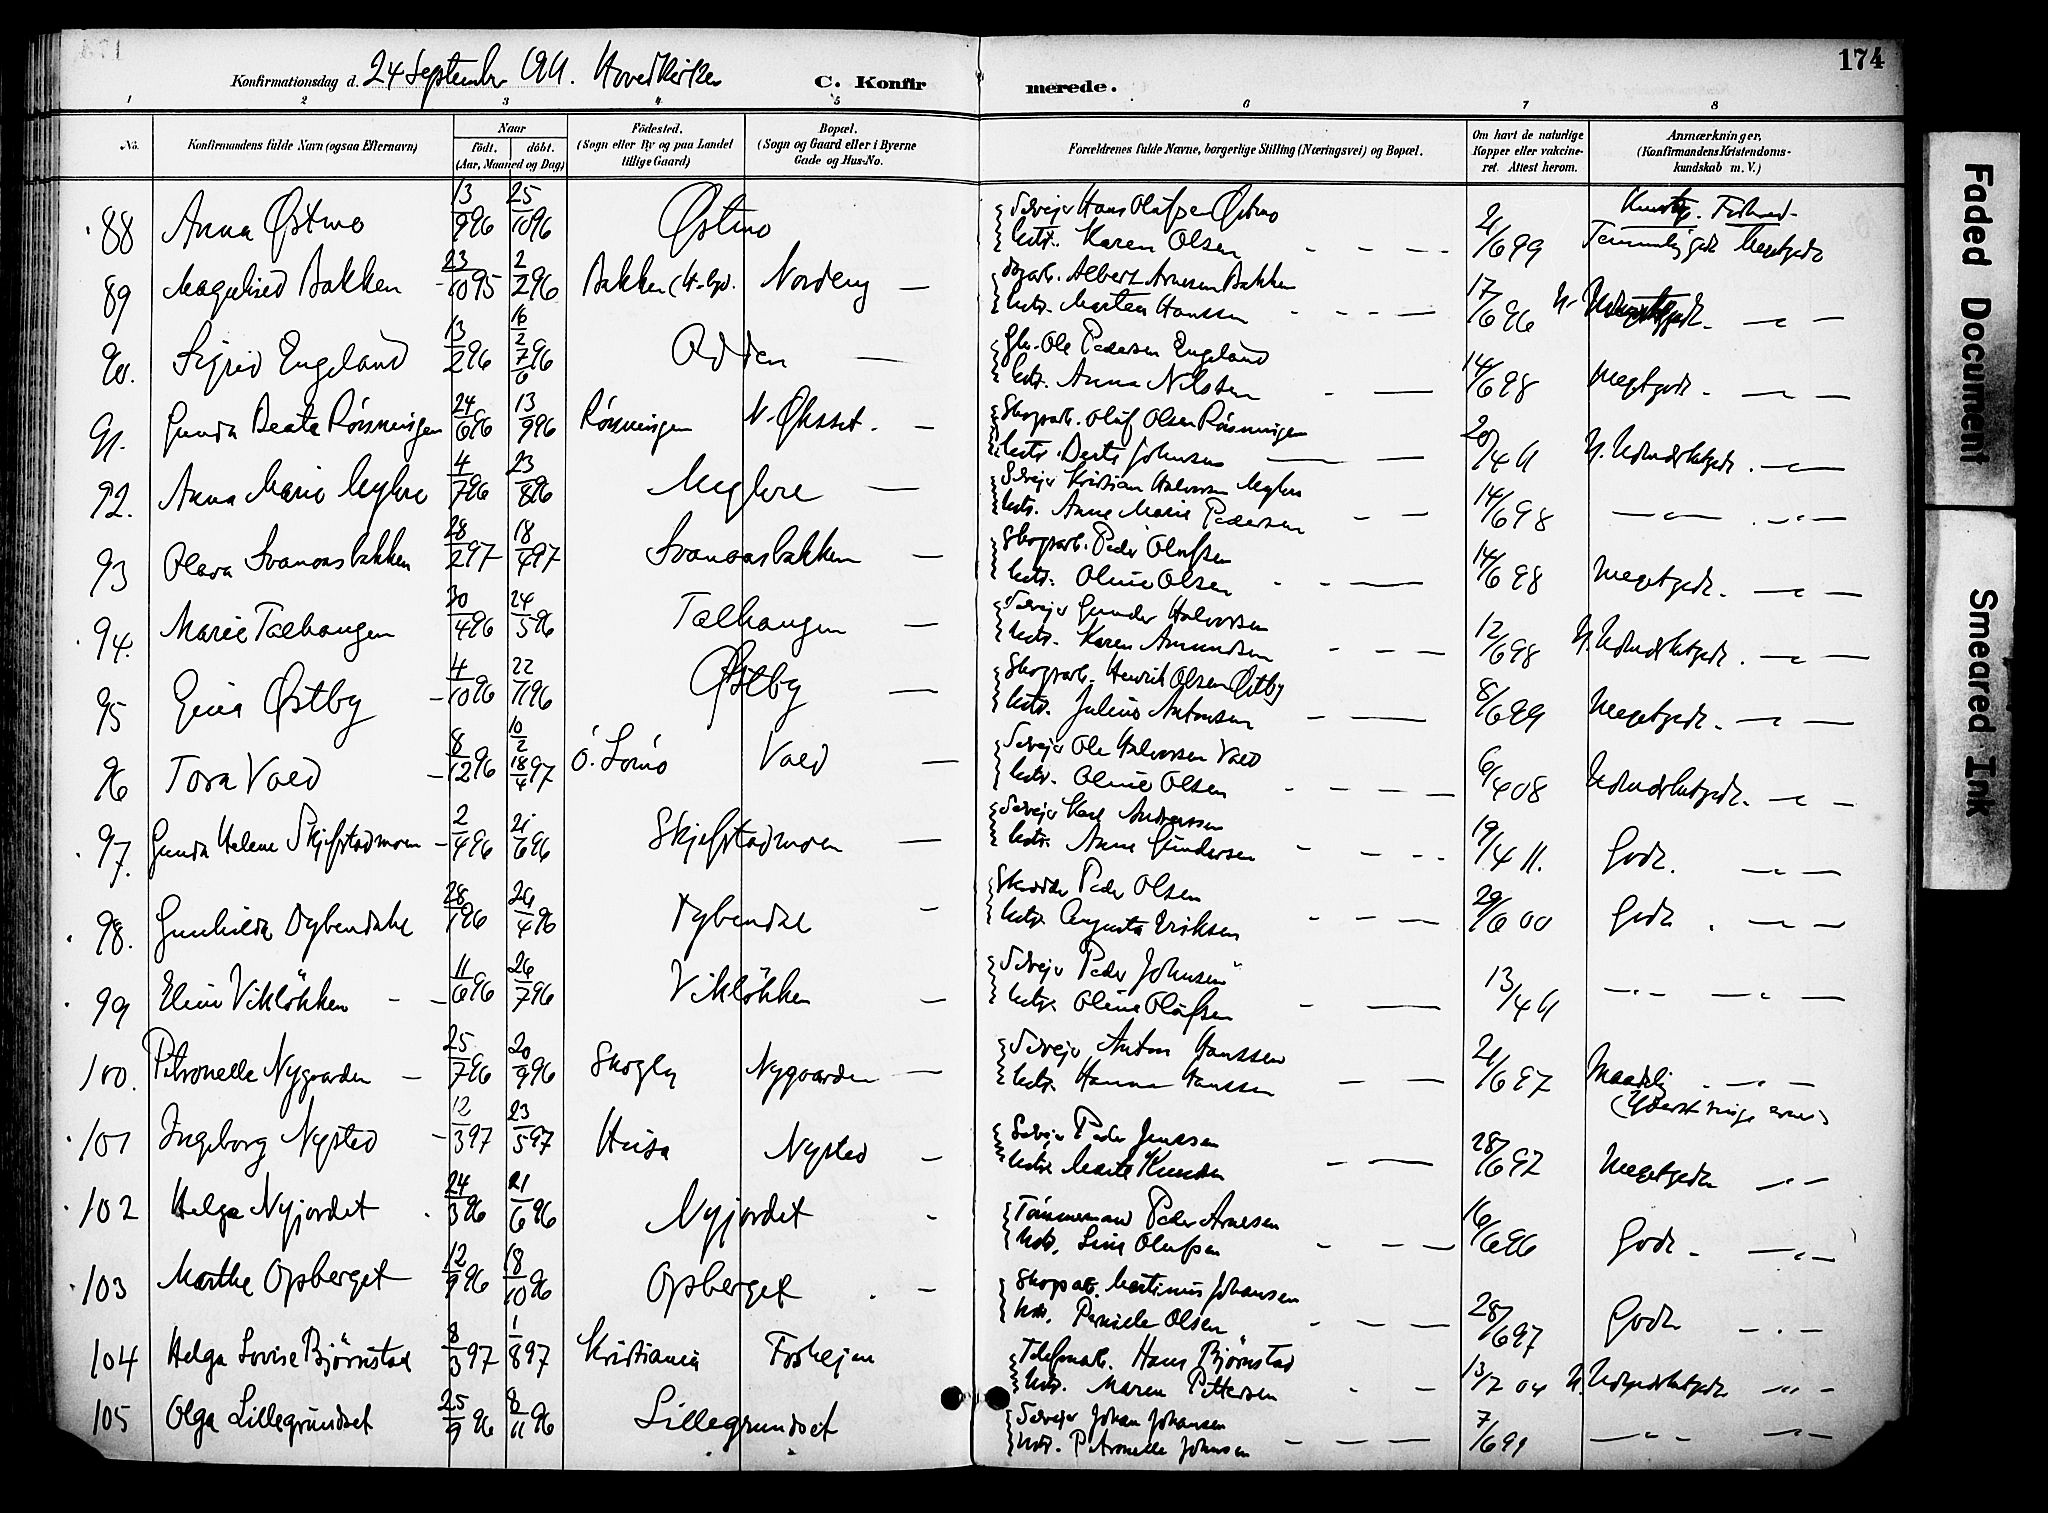 174
Konfirmationsdag d. 24 September 1911. Hovedkirken C. Konfirmerede.
1 2 3 4 5 6 7 8
No. Konfirmandens fulde Navn (ogsaa Efternavn) Naar født. døbt. (Aar, Maaned og Dag) Fødested. (Sogn eller By og paa Landet tillige Gaard) Bopæl. (Sogn og Gaard eller i Byerne Gade og Hus-No.) Forældrenes fulde Navne, borgerlige Stilling (Næringsvei) og Bopæl. Om havt de naturlige Kopper eller vakcineret. Attest herom. Anmærkninger. (Konfirmandens Kristendomskundskab m. V.)
88 Anna Østmo 13/9 96 25/10 96 Østmo Selvejer Hans Olafsen Østmo 21/6 99 Temmelig godt Meget godt
Hustr. Karen Olsen
89 Magnhild Bakken 23/10 95 2/2 96 Bakken Nordeng Albert Arnesen Bakken 17/6 96
Hustr. Marten Hanssen
90. Sigrid Engeland 13/2 96 16/2 7/6 96 Odden Ole Pedersen Engeland 14/6 98 Megetgodt.
Hustr. Anna Nilssen
91. Gunda Beate Rønningen 24/6 96 13/9 96 Rønningen N. Øksset. Skogsarb. Oluf Olsen Rønningen 20/4 11 N. Udmærketgodt.
Hustr. Berte Johnsen
92. Anna Marie Myhre 4/7 96 23/8 96 Myhre Selvejer Kristian Halvorsen Myhre 14/6 98
Hustr. Anne Marie Pedersen
93 Olava Svanaasbakken 28/2 97 18/4 97 Svanaasbakken Skogsarb. Peder Olafsen 14/6 98 Megetgodt.
Hustr. Oline Olsen
94. Marie Tælhaugen 30/4 96 24/5 96 Tælhaugen Selvejer Gunder Halvorsen 12/6 98 N. Udmærketgodt.
Hustr. Karen Amundsen
95 Gina Østby 4/10 96 22/11 96 Østby Skogsarb. Henrik Olsen Østby 8/6 99 Megetgodt.
Hustr. Juline Antonsen
96 Tora Vold 8/12 96 10/2 18/4 97 Ö. Lömo Vold Selvejer Ole Halvorsen Vold 6/4 08 Udmærketgodt.
Hustr. Oline Olsen
97. Gunda Helene Skjefstadmoen 2/4 96 21/6 96 Skjefstadmoen Selvejer Karl Andersen 19/4 11. Godt.
Hustr. Anne Gundersen
98. Gunhilda Dybendahl 28/1 96 26/4 96 Dybendal Skrædder Peder Olsen 29/6 00 Godt
Hustr. Augusta Eriksen
99 Eline Viklökken 11/6 96 26/7 96 Viklökken Selvejer Peder Johnsen 13/4 11
Hustr. Oline Olafsen
100. Petronelle Nygaarden 25/7 96 20/9 96 Skogly Nygaarden Selvejer Anton Hanssen 21/6 97 Maadelig
Hustr. Hanna Hanssen
101 Ingeborg Nysted 12/3 97 23/5 97 Husa Nysted Selvejer Peder Jenssen 28/6 97 Megetgodt
Hustr. Marte Knudsen
102 Helga Nyjordet 24/3 96 21/6 96 Nyjordet Tømmermand Peder Arnesen 16/6 96 Godt.
Hustr. Line Olafsen
103 Marthe Opsberget 12/9 96 18/10 96 Opsberget Skogsarb. Martinus Johansen 28/6 97 Godt
Hustr. Pernille Olsen
104 Helga Lovise Bjørnstad 8/3 97 1/8 97 Kristiania Forhejen Telefonarb. Hans Bjørnstad 13/7 04 N. Udmærketgodt
Hustr. Maren Pettersen
105 Olga Lillegrundset 25/9 96 8/11 96 Lillegrundset Selvejer Johan Johansen 7/6 99
Hustr. Petronelle Johnsen
Faded Document
Smeared Ink